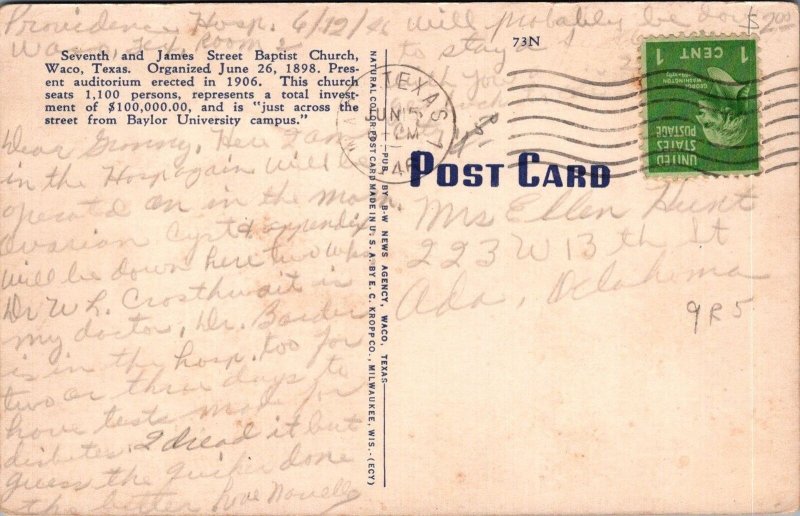 Providence Hosp. 6/12/46
Waco, Tex. Room 2
will probably be down
to stay a
Seventh and James Street Baptist Church,
Waco, Texas. Organized June 26, 1898. Pres-
ent auditorium erected in 1906. This church
seats 1,100 persons, represents a total invest-
ment of $100,000.00, and is "just across the
street from Baylor University campus."
Dear Granny, Here I am
in the Hosp again will be
operated on in the morn.
Ovarian cyst & appendix
will be down here two wks
Dr W L. Crosthwait is
my doctor, Dr.
is in the hosp. too for
two or three days to
have tests made for
diabetes. I dread it but
guess the quicker done
the better. Love Novella
NATURAL COLOR POST CARD MADE IN U. S. A. BY E. C. KROPP CO., MILWAUKEE, WIS. (ECY)
PUB. BY B-W NEWS AGENCY, WACO, TEXAS
73N
TEXAS
JUN
46
1 CENT 1
GEORGE WASHINGTON
UNITED
STATES
POSTAGE
POST CARD
Mrs Ellen Hunt
223 W 13 th St
Ada, Oklahoma
9R5
2.00